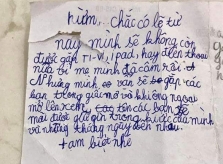 hừm... chắc có lẽ từ
nay mình sẽ không còn
được gặp Ti-Vi, ipad, hay điện thoại
nữa bị mẹ mình đã cấm rồi
Nhưng mình vẫn sẽ gặp các
bạn trong giấc mơ và không ngoại
mở lên xem các bạn
mãi được giữ gìn trong kí ức của mình
và những tháng ngày đến nhau
tạm biệt nhé